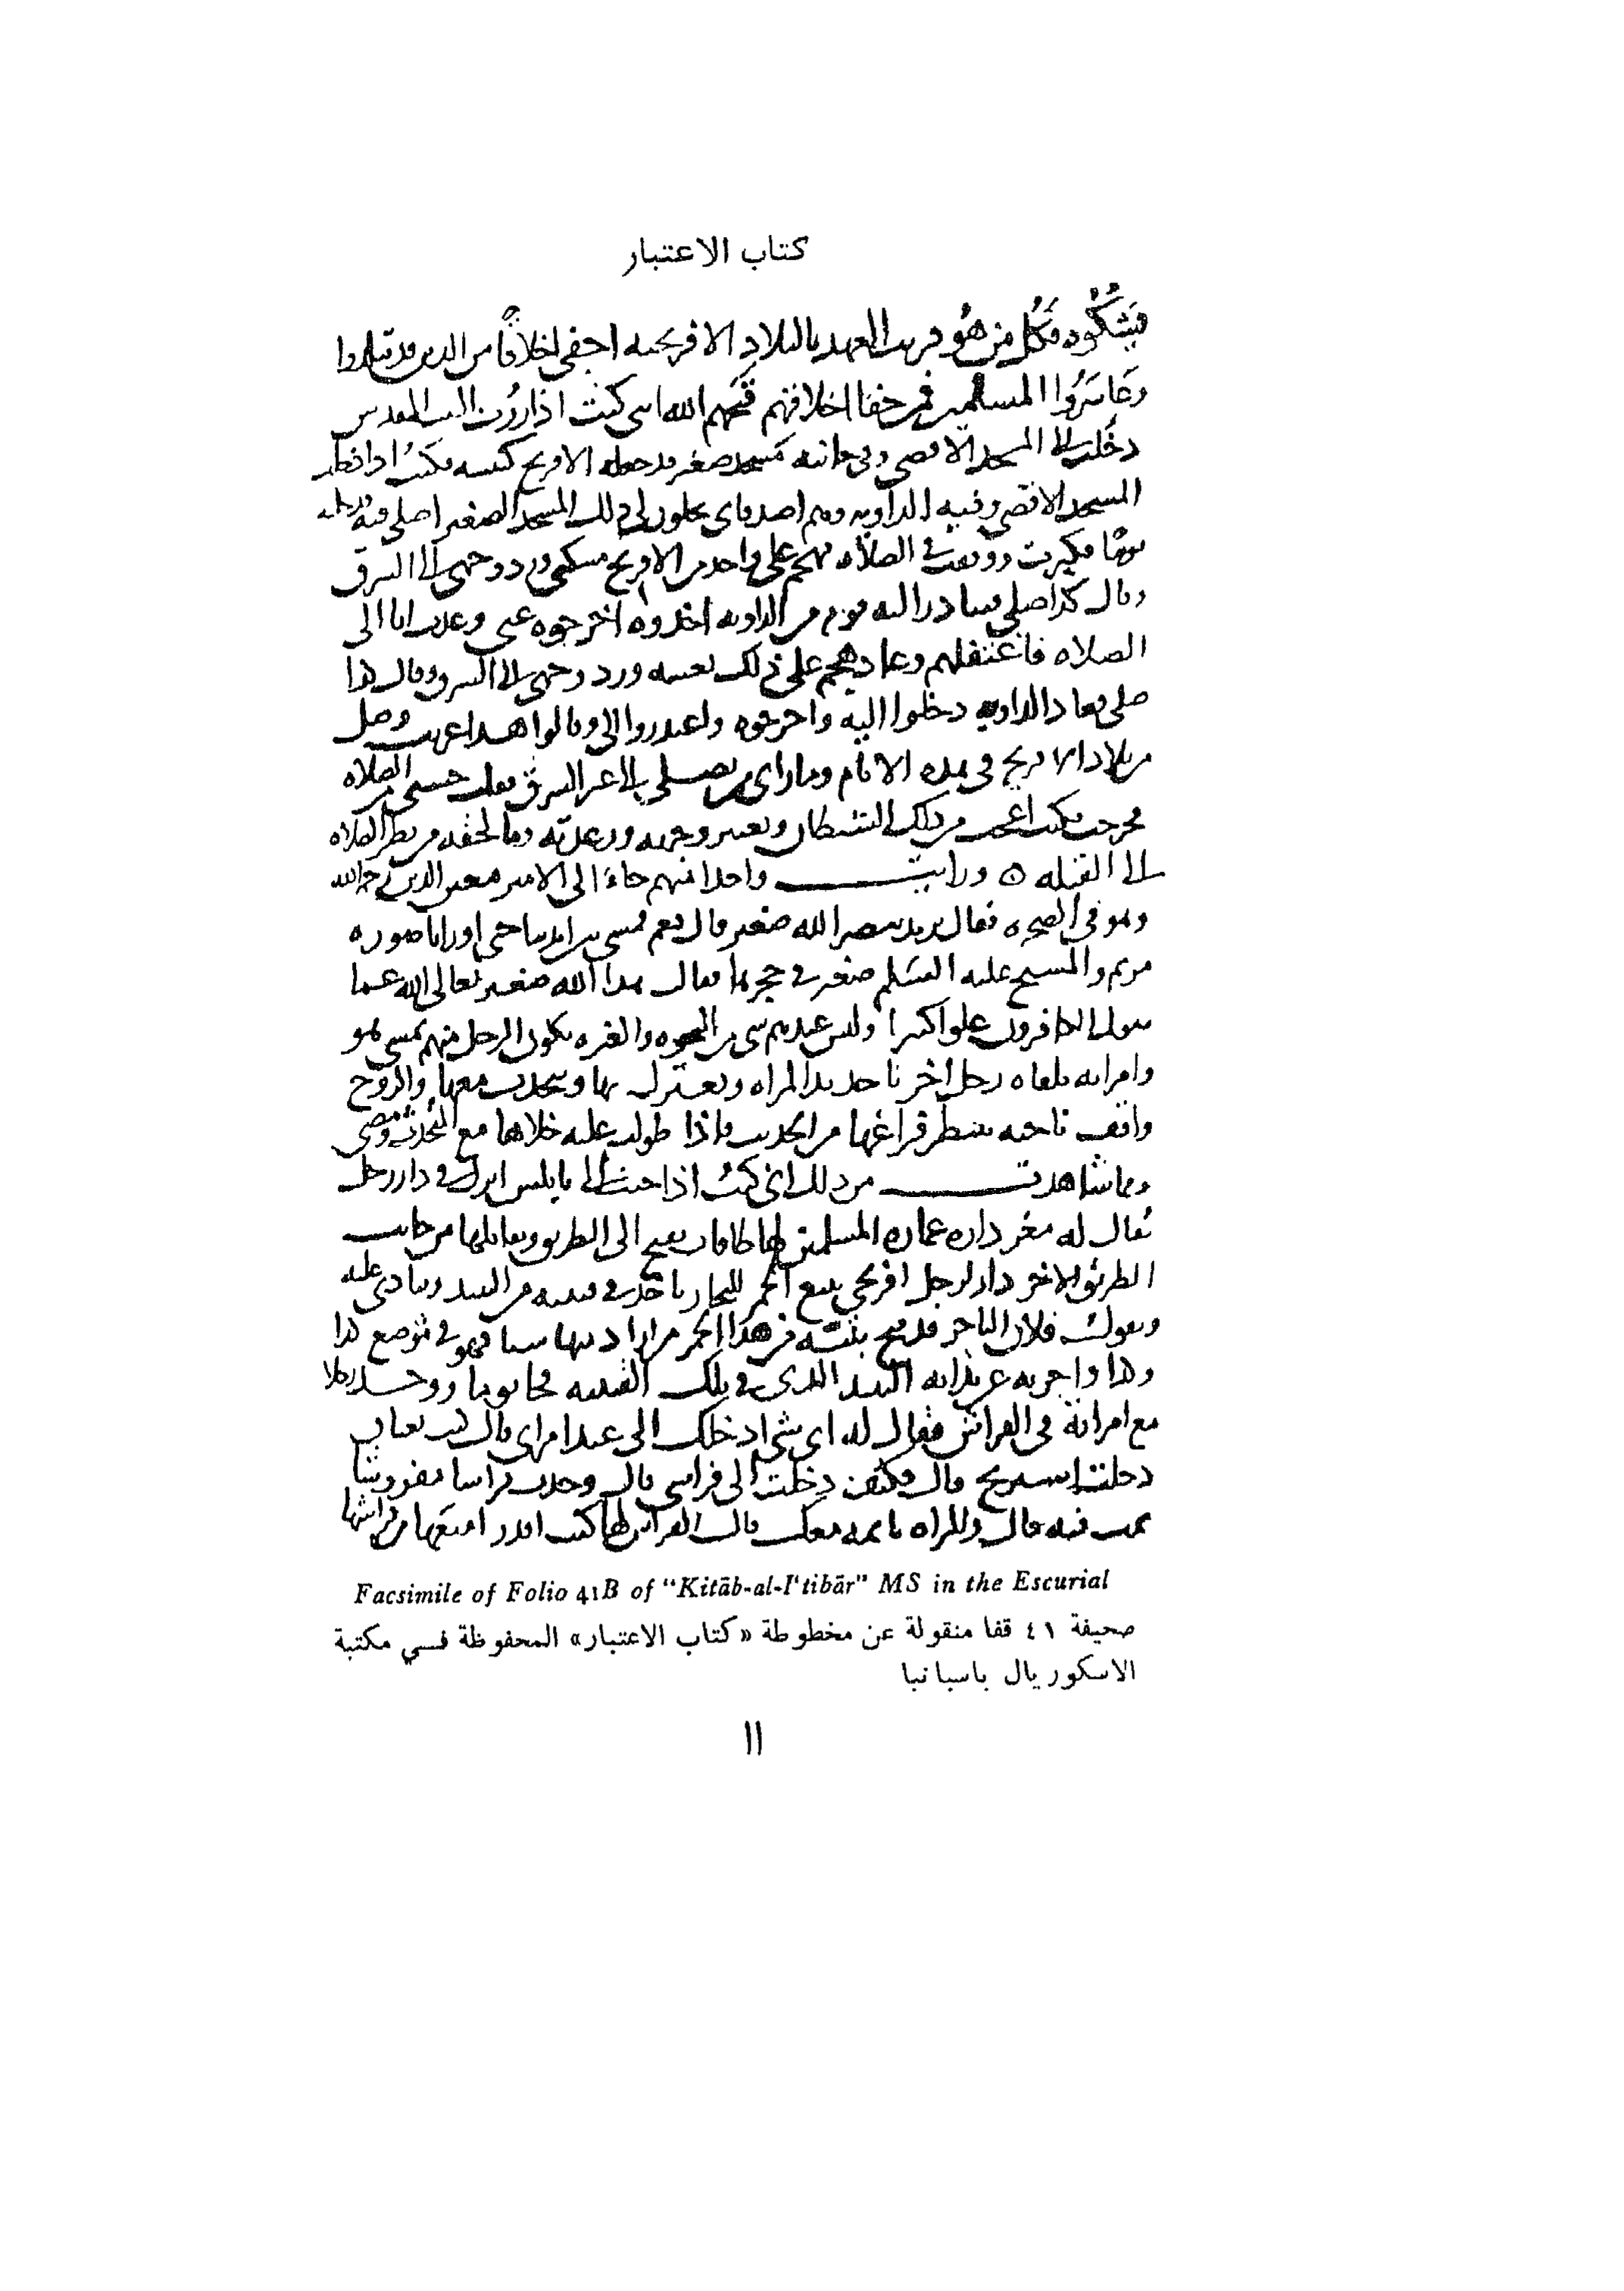 كتاب الاعتبار
فيشكوه فكل من هو قريب العهد بالبلاد الافرنجيه اجفى اخلاقًا من الذين قد تبلدوا
وعَاشَرُوا المسلمين فمن جفا اخلاقهم قبّحهم الله انني كنت اذا زُرت البيت المقدس
دخلت الى المسجد الاقصى وفي جانبه مسجد صغير قد جعله الافرنج كنيسه فكنتُ اذا دخلت
المسجد الاقصى وفيه الداويه وهم اصدقاي يخلون لي ذلك المسجد الصغير اصلي فيه فدخلته
يومًا فكبرت ووقفت في الصلاه فهجم علي واحد من الافرنج مسكني ورد وجهي الى الشرق
وقال كذا صلي فبادر اليه قوم من الداويه اخذوه اخرجوه عني وعدت انا الى
الصلاه فاغتفلهم وعاد هجم علي ذلك بعينه ورد وجهي الى الشرق وقال كذا
صلي فعاد الداويه دخلوا اليه واخرجوه واعتذروا الي وقالوا هذا غريب وصل
من بلاد الافرنج في هذه الايام وما راى من يصلي الى غير الشرق فقلت حسبي من الصلاه
فخرجت فكنت اعجب من ذلك الشيطان وتغيير وجهه ورعدته وما لحقه من نظر الصلاه
الى القبله ۞ ورايت واحدا منهم جاءَ الى الامير معين الدين رحمه الله
وهو في الصخره فقال تريد تبصر الله صغير قال نعم فمشى بين ايدينا حتى اورانا صوره
مريم والمسيح عليه السلم صغير في حجرها فقال هذا الله صغير تعالى الله عما
يقول الكافرون علوا كبيرا وليس عندهم شي من النخوه والغيره يكون الرجل منهم يمشي هو
وامراته يلقاه رجل اخر ياخذ يد المراه ويعتزل بها ويتحدث معها والزوج
واقف ناحيه ينتظر فراغها من الحديث فاذا طولت عليه خلاها مع المتحدث ومضى
ومما شاهدت من ذلك اني كنتُ اذا جيت الى نابلس انزل في دار رجل
يُقال له معز داره عماره المسلمين لها طاقات تفتح الى الطريق ويقابلها من جانب
الطريق الاخر دار لرجل افرنجي يبيع الخمر للتجار ياخذ في قنينه من النبيد وينادي عليه
ويقول فلان التاجر قد فتح بتيّه من هذا الخمر من اراد منها شيا فهو في موضع كذا
وكذا واجرته عن ندايه النبيد الذي في تلك القنينه فجا يوما ووجد رجلا
مع امراته في الفراش فقال له اي شي ادخلك الى عند امراتي قال كنت تعبان
دخلت استريح قال فكيف دخلت الى فراشي قال وجدت فراشا مفروشا
نمت فيه قال والمراه نايمه معك قال الفراش لها كنت اقدر امنعها من فراشها
Facsimile of Folio 41B of "Kitāb-al-I‘tibār" MS in the Escurial
صحيفة ٤١ قفا منقولة عن مخطوطة «كتاب الاعتبار» المحفوظة فسي مكتبة
الاسكوريال باسبانيا
١١